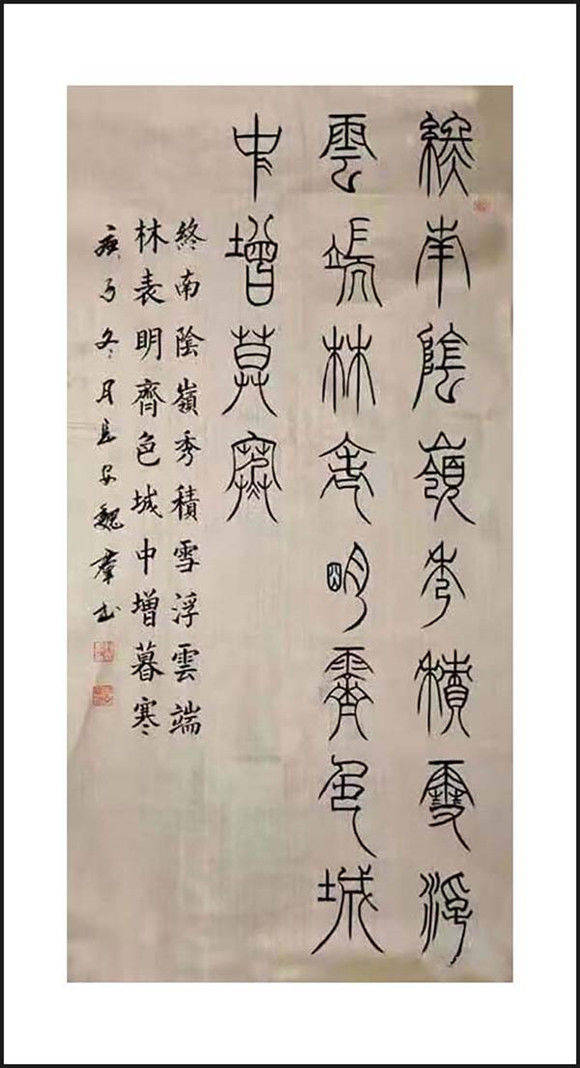 終南陰嶺秀積雪浮
雲端林表明霽色城
中增莫寒
終南陰嶺秀積雪浮雲端
林表明齊色城中增暮寒
庚子冬月長安魏羣书